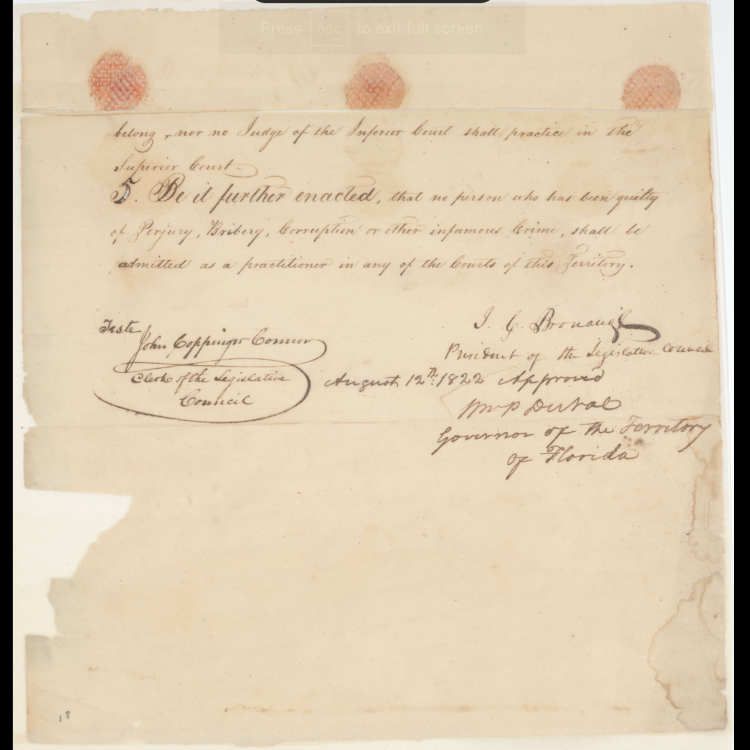 Press esc to exit full screen
belong, nor no Judge of the Inferior Court shall practice in the
Superior Court.
5. Be it further enacted, that no person who has been guilty
of Perjury, Bribery, Corruption or other infamous Crime, shall be
admitted as a practitioner in any of the Courts of this Territory.
Teste
John Coppinger Connor
Clerk of the Legislative
Council
J. G. Bronaugh
President of the Legislative Council
August 12th. 1822 Approved
Wm P DuVal
Governor of the Territory
of Florida
18